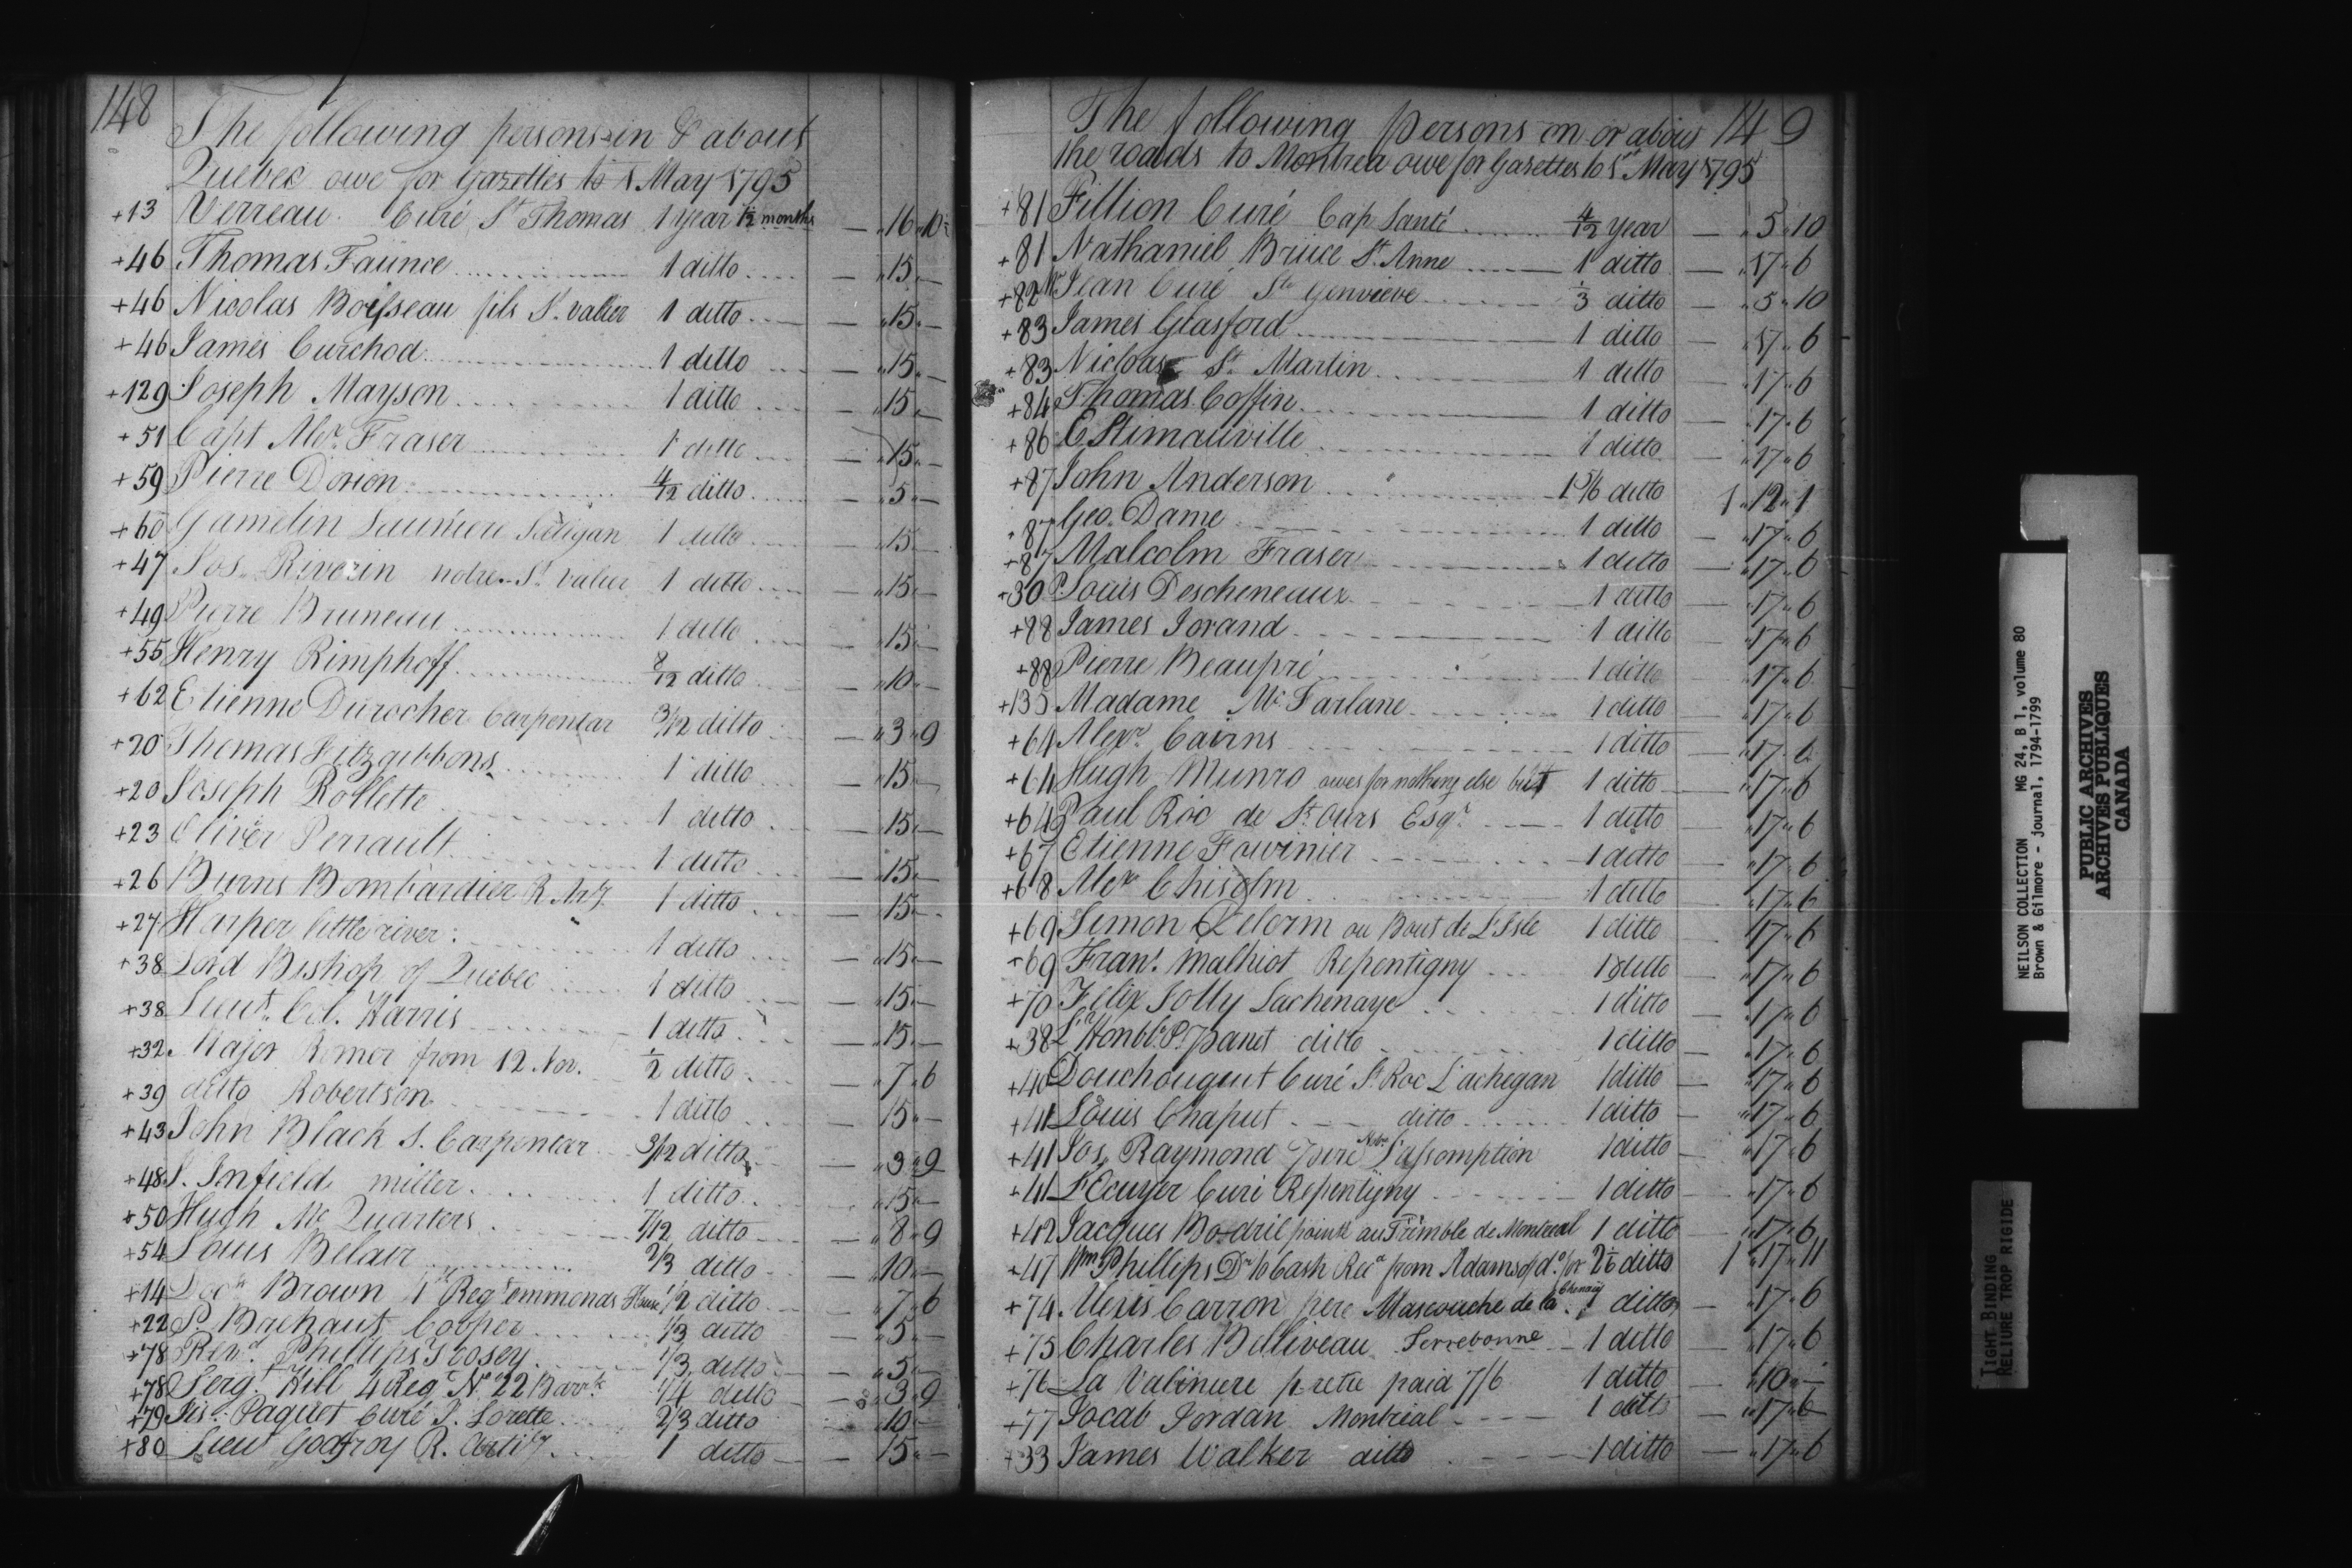 148
The following persons in & about
Quebec owe for Gazettes to 1 May 1795
+13 Verreau Curé St Thomas 1 year 1½ months — " 16 " 10½
+46 Thomas Faunce 1 ditto — " 15 " —
+46 Nicolas Boisseau fils St. Valier 1 ditto — " 15 " —
+46 James Curchod 1 ditto — " 15 " —
+129 Joseph Mayson 1 ditto — " 15 " —
+51 Capt Alexr. Fraser 1 ditto — " 15 " —
+59 Pierre Dorion 4/12 ditto — " 5 " —
+60 Gamelin 1 ditto — " 15 " —
+47 Jos. Riverin notre. St. Valier 1 ditto — " 15 " —
+49 Pierre Bruneau 1 ditto — " 15 " —
+55 Henry Rimphoff 8/12 ditto — " 10 " —
+62 Etienne Durocher Carpentar 3/12 ditto — " 3 " 9
+20 Thomas Fitzgibbons 1 ditto — " 15 " —
+20 Joseph Rollette 1 ditto — " 15 " —
+23 Oliver Perrault 1 ditto — " 15 " —
+26 Burns Bombardier R. Arty. 1 ditto — " 15 " —
+27 Harper little river 1 ditto — " 15 " —
+38 Lord Bishop of Quebec 1 ditto — " 15 " —
+38 Lieut. Col. Harris 1 ditto — " 15 " —
+32 Major Romer from 12 Nov. ½ ditto — " 7 " 6
+39 ditto Robertson 1 ditto 15 " —
+43 John Black S. Carpentar 3/12 ditto — " 3 " 9
+48 J. Infield miller 1 ditto — " 15 " —
+50 Hugh Mc Quarters 7/12 ditto — " 8 " 9
+54 Louis Belair 2/3 ditto — " 10 " —
+14 Brown 1st Regt Emmonds House 1/2 ditto — " 7 " 6
+22 P. Brehaut Cooper 1/3 ditto — " 5 " —
+78 Revd. Phillips Tosey 1/3 ditto — " 5 " —
+78 Sergt. Hill 4 Regt No. 22 Barrk 1/4 ditto — " 3 " 9
+79 Paquet Curé J. Lorette 2/3 ditto — " 10 —
+80 Lieut Godfroy R. Artily 1 ditto — 15 " —
149
The following persons on or about
the roads to Montreal owe for Gazettes to 1st May 1795
+81 Fillion Curé Cap Santé 4/12 year — " 5 " 10
+81 Nathaniel Bruce St. Anne 1 ditto — " 17 " 6
+82 Mr Jean Curé Ste Genvieve 1/3 ditto — " 5 " 10
+83 James Glasford 1 ditto — " 17 " 6
+83 Nicloas St. Martin 1 ditto — " 17 " 6
+84 Thomas Coffin 1 ditto — " 17 " 6
+86 EStimauville 1 ditto — " 17 " 6
+87 John Anderson 1 5/6 ditto 1 " 12 " 1
+87 Geo. Dame 1 ditto — " 17 " 6
+87 Malcolm Fraser 1 ditto — " 17 " 6
+30 P. Louis Descheneaux 1 ditto — " 17 " 6
+88 James Jorand 1 ditto — " 17 " 6
+88 Pierre Beaupré 1 ditto — " 17 " 6
+135 Madame Mc Farlane 1 ditto — " 17 " 6
+64 Alexr. Cairns 1 ditto — " 17 " 6
+64 Hugh Munro owes for nothing else but 1 ditto — " 17 " 6
+64 Paul Roc de St. Ours Esqr. 1 ditto — " 17 " 6
+67 Etienne Fowinier 1 ditto — " 17 " 6
+68 Alexr Chisolm 1 ditto — " 17 " 6
+69 Simon Delorm au Bout de L'Isle 1 ditto — " 17 " 6
+69 Frans. Malhiot Repentigny 1 ditto — " 17 " 6
+70 Felix Jolly Lachenaye 1 ditto — " 17 " 6
+38 L'Honble. P. Panet ditto 1 ditto — " 17 " 6
+40 Douchouquet Curé St. Roc L'achegan 1 ditto — " 17 " 6
+41 Louis Chaput ditto 1 ditto — " 17 " 6
+41 Jos. Raymond Pere Notre L'assomption 1 ditto — " 17 " 6
+41 L'Ecuyer Curé Repentigny 1 ditto — " 17 " 6
+42 Jacques Bodril pointe au Trimble de Montreal 1 ditto — " 17 " 6
+47 Wm Phillips Dr to Cash Recd from Adams of do. for 2 1/6 ditto 1 " 17 " 11
+74 Alexis Carron pere Mascouche de la Chenay 1 ditto — " 17 " 6
+75 Charles Belliveau Terrebonne 1 ditto — " 17 " 6
+76 La Valiniere pretre paid 7/6 1 ditto — " 10 " —
+77 Jocab Jordan Montreal 1 ditto — " 17 " 6
+33 James Walker ditto 1 ditto — " 17 " 6
NEILSON COLLECTION MG 24, B 1, volume 80
Brown & Gilmore - journal, 1794-1799
PUBLIC ARCHIVES
ARCHIVES PUBLIQUES
CANADA
TIGHT BINDING
RELIURE TROP RIGIDE